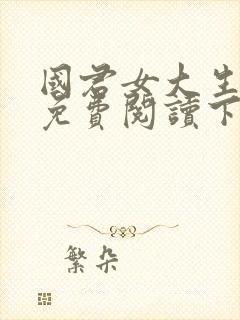 國君女大生
免費閱讀下
繁朵